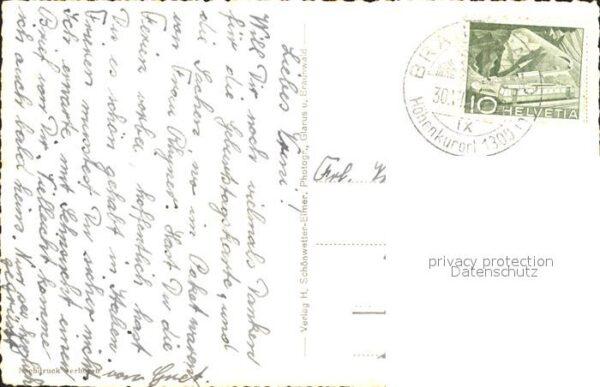 Liebes Erni!
Will Dir noch vielmals Danken
für die Geburtstagskarte, und
die Sachen wo im Paket waren
von Frau Rhyner. Hast Du die
Ferien vorbei, hoffentlich hast
Du es schön gehabt in Italien
Frieren musstest Du sicher nicht
Ich erwarte mit Sehnsucht einen
Brief von Dir. Vielleicht komme
ich auch bald heim. Nur
von
Nachdruck verboten
Verlag H. Schönwetter-Elmer, Photogr., Glarus u. Braunwald
Frl.
BRA
30.
IX
Höhenkurort 1300
10 HELVETIA
privacy protection
Datenschutz